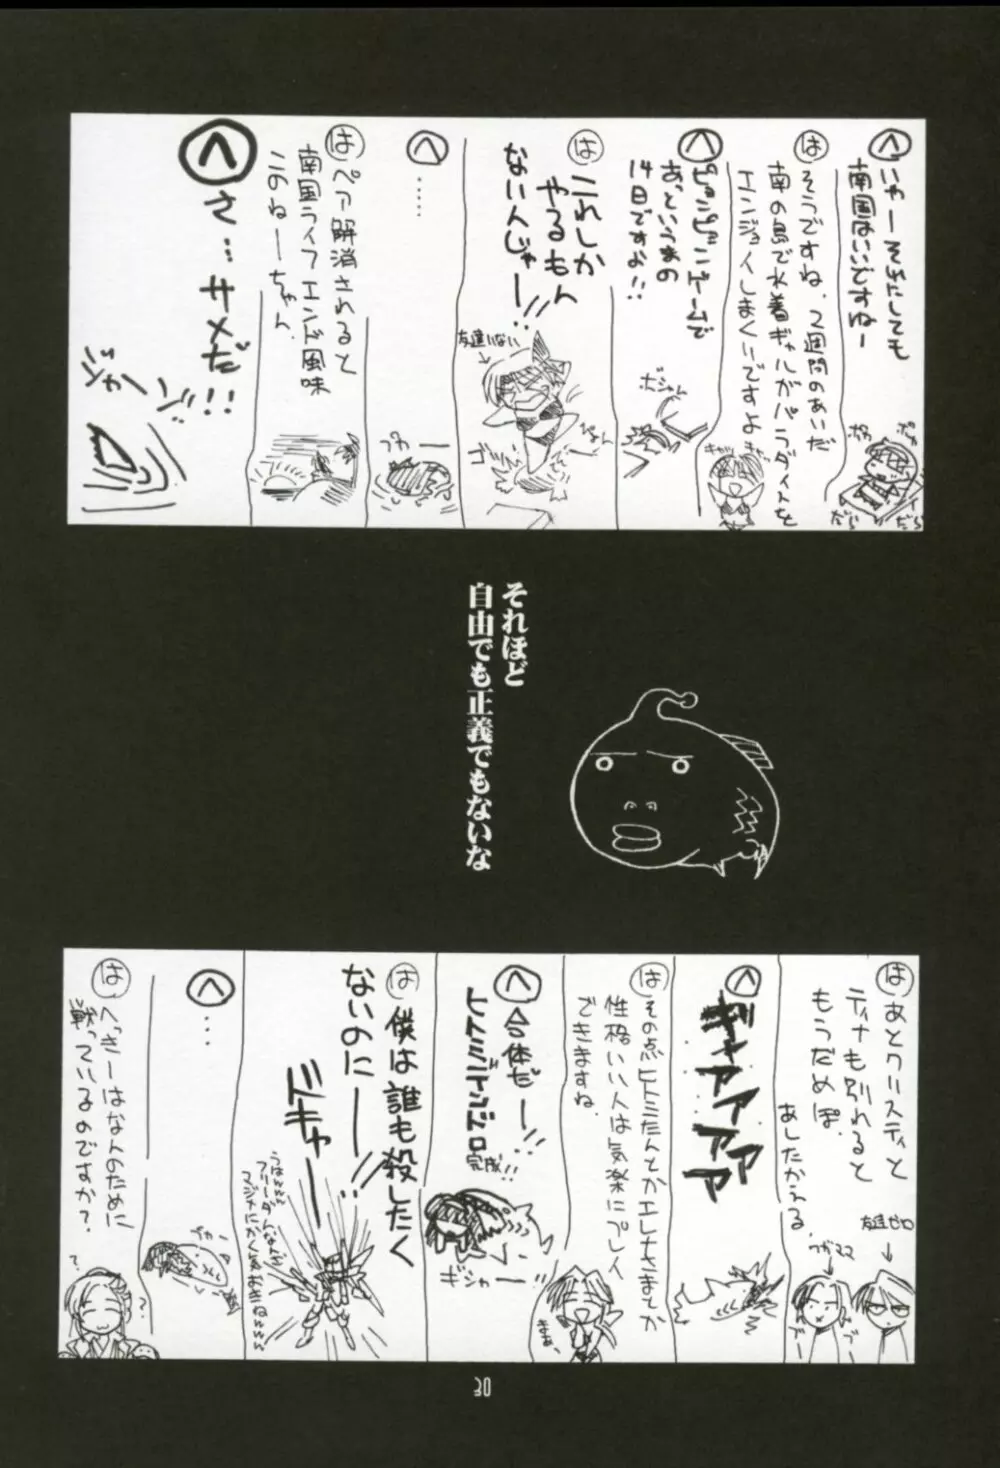 へ いやーそれにしても
南国はいいですねー
ポカ
ポカ
だら
だら
は そうですね、2週間のあいだ
南の島で水着ギャルがパラダイスを
エンジョイしまくりですよ
キャッ
へ ピョンピョンゲームで
あっというまの
14日ですよ!!
ボシャーン
は これしか
やるもん
ないんじゃー!!
友達いない
へ ……
プカー
は ペア解消されると
南国ライフエンド風味
このねーちゃん
へ さ…サメだ!!
ジャーン
それほど
自由でも正義でもないな
は あとクリスティと
ティナも別れると
もうだめぽ
あしたかえる
友達ゼロ
へ ギャアアアアア
は その点ヒトミたんとかエレナさまとか
性格いい人は気楽にプレイ
できますね
へ 合体だー!!
ヒトミティンドロ
完成!!
ギシャー!!
は 僕は誰も殺したく
ないのにー!!
ドキャー
うはwww
へ …
プカー
は へっきーはなんのために
戦っているのですか?
?
30